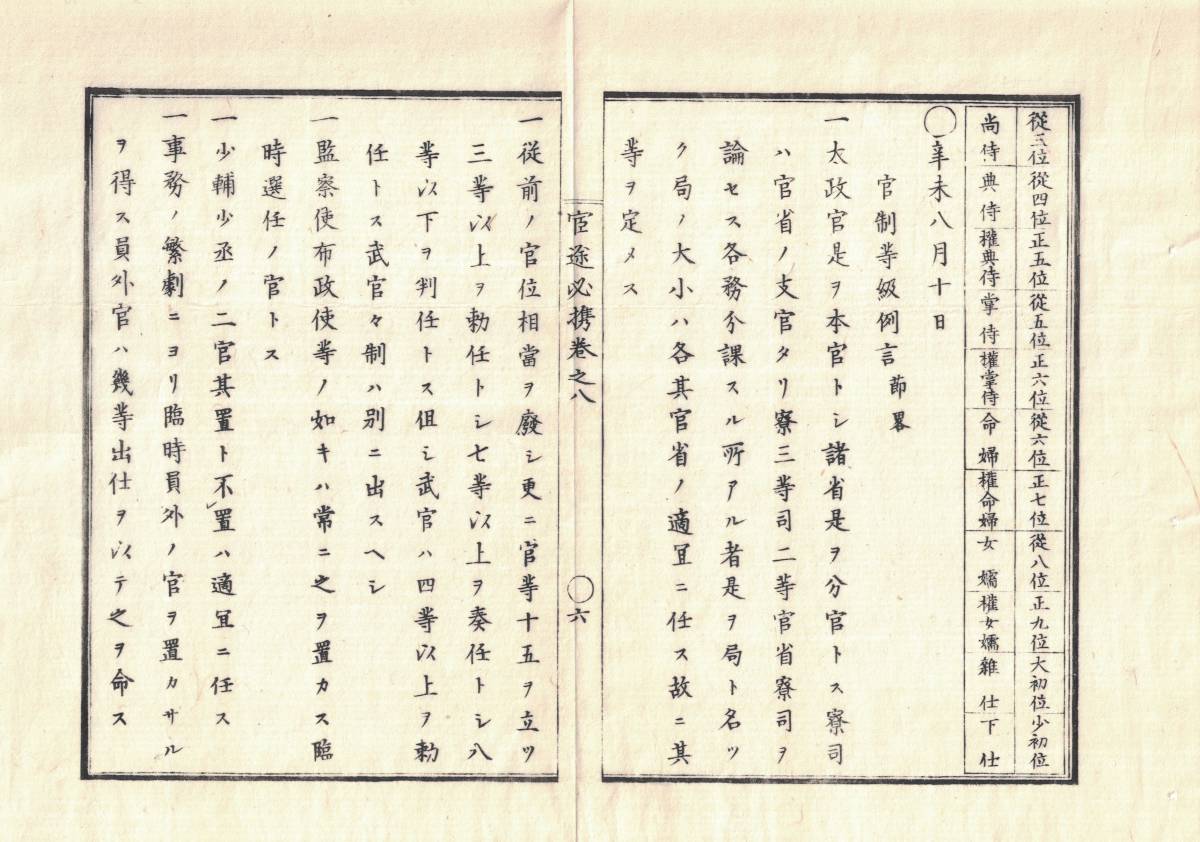 從三位從四位正五位從五位正六位從六位正七位從八位正九位大初位少初位
尚侍典侍權典侍掌侍權掌侍命婦權命婦女嬬權女嬬雜仕下仕
〇辛未八月十日
官制等級例言 節畧
一太政官是ヲ本官トシ諸省是ヲ分官トス寮司
ハ官省ノ支官タリ寮三等司二等官省寮司ヲ
論セス各務分課スル所アル者是ヲ局ト名ツ
ク局ノ大小ハ各其官省ノ適冝ニ任ス故ニ其
等ヲ定メス
官途必携卷之八
〇六
一従前ノ官位相當ヲ廢シ更ニ官等十五ヲ立ツ
三等以上ヲ勅任トシ七等以上ヲ奏任トシ八
等以下ヲ判任トス但シ武官ハ四等以上ヲ勅
任トス武官々制ハ別ニ出スヘシ
一監察使布政使等ノ如キハ常ニ之ヲ置カス臨
時選任ノ官トス
一少輔少丞ノ二官其置ト不置ハ適冝ニ任ス
一事務ノ繁劇ニヨリ臨時員外ノ官ヲ置カサル
ヲ得ス員外官ハ幾等出仕ヲ以テ之ヲ命ス